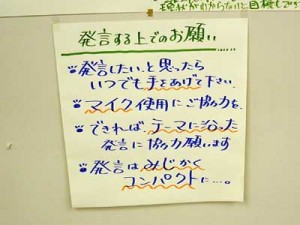 発言する上でのお願い
発言したい、と思ったら
いつでも手をあげて下さい。
マイク使用にご協力を。
できれば、テーマに沿った
発言に協力願います
発言はみじかく
コンパクトに…。